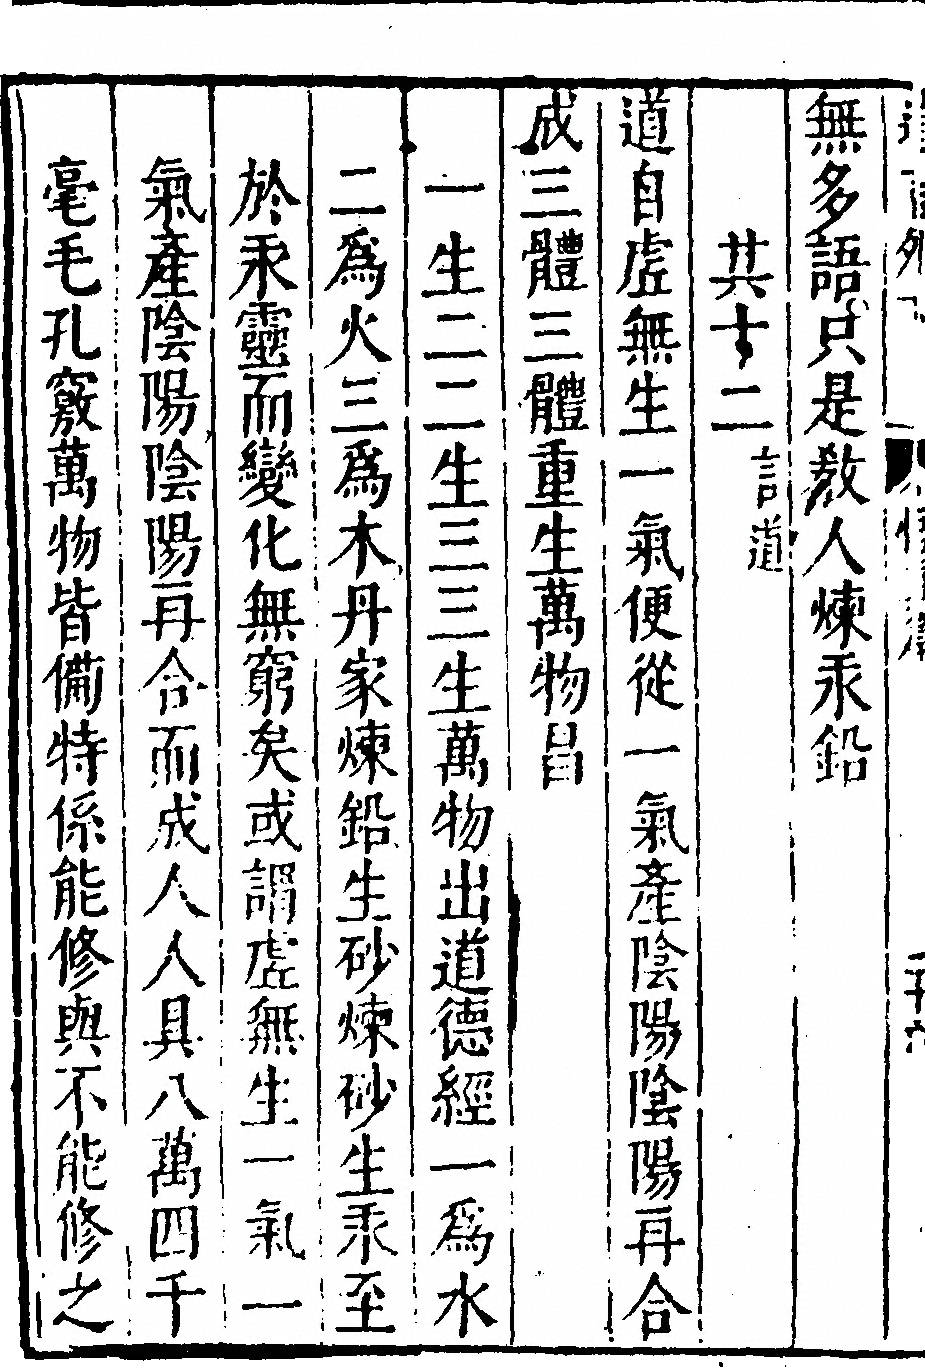 無多語只是教人煉汞鉛
其十二 言道
道自虛無生一氣便從一氣產陰陽陰陽再合
成三體三體重生萬物昌
一生二二生三三生萬物出道德經一為水
二為火三為木丹家煉鉛生砂煉砂生汞至
於汞靈而變化無窮矣或謂虛無生一氣一
氣產陰陽陰陽再合而成人人具八萬四千
毫毛孔竅萬物皆備特係能修與不能修之